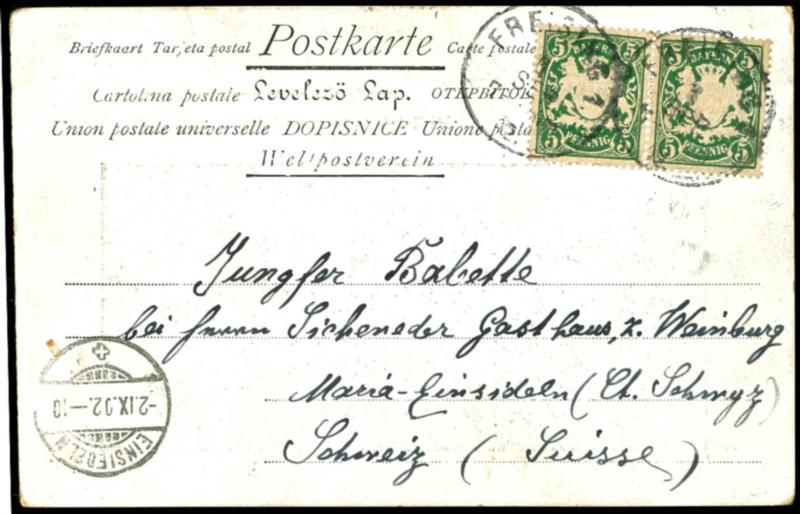 Briefkaart Tarjeta postal Postkarte Carte postale
Cartolina postale Levelező Lap. ОТКРЫТОЕ
Union postale universelle DOPISNICE Unione postale
Weltpostverein
FREISING
5 BAYERN 5
5 PFENNIG 5
5 BAYERN 5
5 PFENNIG 5
Jungfer Babette
bei Herrn Sicheneder Gasthaus, z. Weinburg
Maria-Einsideln (Ct. Schwyz)
Schweiz (Suisse)
-2.IX.02.-10
EINSIEDELN